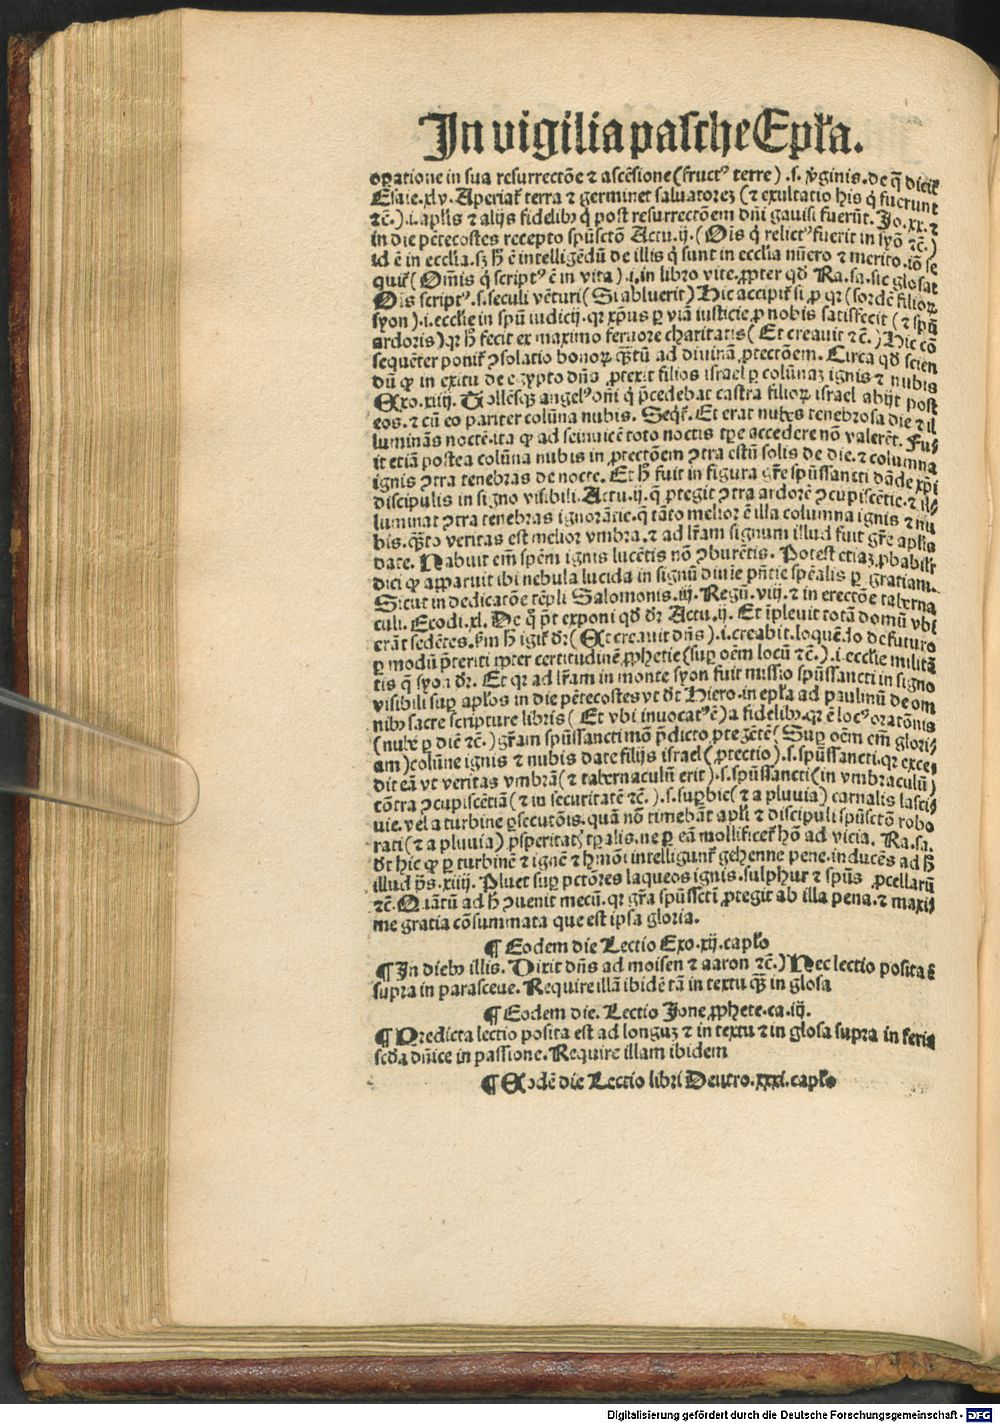 In vigilia pasche Epła.
oꝑatione in sua resurrectōe ⁊ ascēsione (fruct⁹ terre) .s. v̄ginis. de q̄ dicit̄
Esaie. xlv. Aperiat̄ terra ⁊ germinet saluatorez (⁊ exultatio his q̇ fuerunt
⁊c̄.) .i. aplis ⁊ alijs fidelibꝫ q̇ post resurrectōem dn̄i gauisi fuerūt. Jo. xx. ⁊
in die pētecostes recepto spūsctō Actu. ij. (Ois q̇ relict⁹ fuerit in syō ⁊c̄.)
id ē in ecclīa. sꝫ h̄ ē intelligēdū de illis q̇ sunt in ecclīa nūero ⁊ merito. iō se
quit̄ (Om̄is q̇ script⁹ ē in vita) .i. in libro vite. ꝓpter qd̄ Ra. sa. sic glosat
Ois script⁹ .s. seculi vēturi (Si abluerit) Hic accipit̄ si ꝓ qr (sordē filioꝝ
syon) .i. ecclie in spū iudicij. qr xp̄us ꝑ viā iusticie ꝓ nobis satisfecit (⁊ spū
ardoris) qr h̄ fecit ex maximo feruore charitatis (Et creauit ⁊c̄.) Hic cō
sequēter ponit̄ ꝯsolatio bonoꝝ q̄ꝫtū ad diuinā ꝓtectōem. Circa qd̄ scien
dū ꝙ in exitu de egypto dn̄s ꝓtexit filios israel ꝑ colūnaz ignis ⁊ nubis
Exo. xiiij. Tollēsqꝫ angel⁹ dn̄i q̇ p̄cedebat castra filioꝝ israel abijt post
eos. ⁊ cū eo pariter colūna nubis. Seqt̄. Et erat nubes tenebrosa die ⁊ il
luminās noctē. ita ꝙ ad seinuicē toto noctis tꝑe accedere nō valerēt. Fu⸗
it etiā postea colūna nubis in ꝓtectōem ꝯtra estū solis de die. ⁊ columna
ignis ꝯtra tenebras de nocte. Et h̄ fuit in figura gr̄e spūssancti dāde xp̄i
discipulis in signo visibili. Actu. ij. q̄ ꝓtegit ꝯtra ardorē ꝯcupiscētie. ⁊ il⸗
luminat ꝯtra tenebras ignorātie. q̄ tāto melior ē illa columna ignis ⁊ nu
bis. q̄ꝫto veritas est melior vmbra. ⁊ ad lr̄am signum illud fuit gr̄e aplis
date. Habuit em̄ spēm ignis lucētis nō ꝯburētis. Potest etiaz ꝓbabilr̄
dici ꝙ apparuit ibi nebula lucida in signū diuīe pn̄tie spēalis ꝑ gratiam.
Sicut in dedicatōe tēpli Salomonis. iij. Regū. viij. ⁊ in erectōe taberna
culi. Exodi. xl. De q̇ p̄t exponi qd̄ dr̄ Actu. ij. Et īpleuit totā domū vbi
erāt sedētes. Fm h̄ igit̄ dr̄ (Et creauit dn̄s) .i. creabit. loquēdo de futuro
ꝑ modū p̄teriti ꝓpter certitudinē ꝓphetie (suꝑ oēm locū ⁊c̄.) .i. ecclie militā
tis q̄ syon dr̄. Et qr ad lr̄am in monte syon fuit missio spūssancti in signo
visibili suꝑ apłos in die pētecostes vt dt̄ Hiero. in epła ad paulinū de om
nibꝫ sacre scripture libris (Et vbi inuocat⁹ ē) a fidelibꝫ. qr ē loc⁹ oratōnis
(nubē ꝑ diē ⁊c̄.) gr̄am spūssancti mō p̄dicto ꝓtegētē (Suꝑ oēm em̄ glori⸗
am) colūne ignis ⁊ nubis date filijs israel (ꝓtectio) .s. spūssancti. qr exce⸗
dit eā vt veritas vmbrā (⁊ tabernaculū erit) .s. spūssancti (in vmbraculū)
cōtra ꝯcupiscētiā (⁊ in securitatē ⁊c̄.) .s. suꝑbie (⁊ a pluuia) carnalis lasci⸗
uie. vel a turbine ꝑsecutōis. quā nō timebāt apłi ⁊ discipuli spūsctō robo
rati (⁊ a pluuia) ꝓsperitat̄ tꝑalis. ne ꝑ eā mollificet̄ hō ad vicia. Ra. sa.
dt̄ hic ꝙ ꝑ turbinē ⁊ ignē ⁊ hmōi intelligunt̄ gehenne pene. inducēs ad h̄
illud ps̄. xiiij. Pluet suꝑ pctōres laqueos ignis. sulphur ⁊ spūs ꝓcellarū
⁊c̄. Quātū ad h̄ ꝯuenit mecū. qr gr̄a spūsscti ꝓtegit ab illa pena. ⁊ maxi⸗
me gratia cōsummata que est ipsa gloria.
¶ Eodem die Lectio Exo. xij. capło
¶ In diebꝫ illis. Dixit dn̄s ad moisen ⁊ aaron ⁊c̄.) Hec lectio posita ē
supra in parasceue. Require illā ibidē tā in textu q̄ꝫ in glosa
¶ Eodem die. Lectio Jone ꝓphete. ca. iij.
¶ Predicta lectio posita est ad longuꝫ ⁊ in textu ⁊ in glosa supra in feria
scd̄a dn̄ice in passione. Require illam ibidem
¶ Eodē die Lectio libri Deutro. xxxi. capło
Digitalisierung gefördert durch die Deutsche Forschungsgemeinschaft - DFG